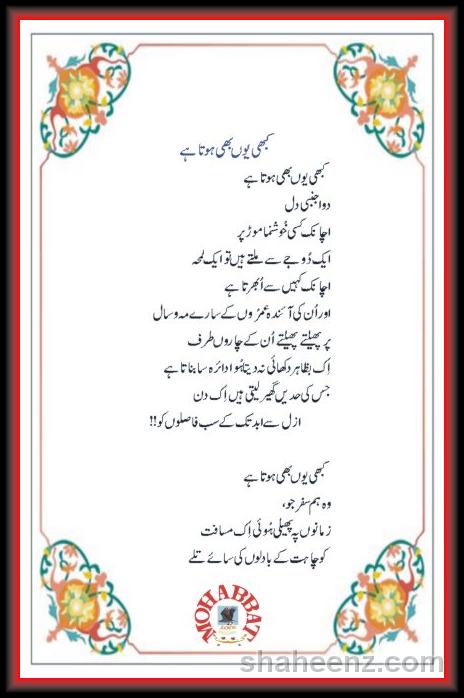 کبھی یوں بھی ہوتا ہے
کبھی یوں بھی ہوتا ہے
دو اجنبی دل
اچانک کسی خُوشنما موڑ پر
ایک دُوجے سے ملتے ہیں تو ایک لمحہ
اچانک کہیں سے اُبھرتا ہے
اور اُن کی آئندہ عمروں کے سارے مہ و سال
پر پھیلتے پھیلتے اُن کے چاروں طرف
اِک بظاہر دکھائی نہ دیتا ہُوا دائرہ سا بناتا ہے
جس کی حدیں گھیر لیتی ہیں اِک دن
ازل سے ابد تک کے سب فاصلوں کو!!
کبھی یوں بھی ہوتا ہے
وہ ہم سفر جو،
زمانوں پہ پھیلی ہُوئی اِک مسافت
کو چاہت کے بادلوں کی سائے تلے
MOHABBAT
shaheenz.com